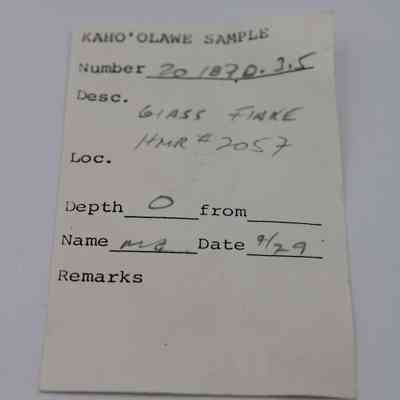 KAHO'OLAWE SAMPLE
Number 20 187 D. 3.5
Desc.
GLASS FLAKE
HMR # 2057
Loc.
Depth 0 from
Name Date 9/29
Remarks